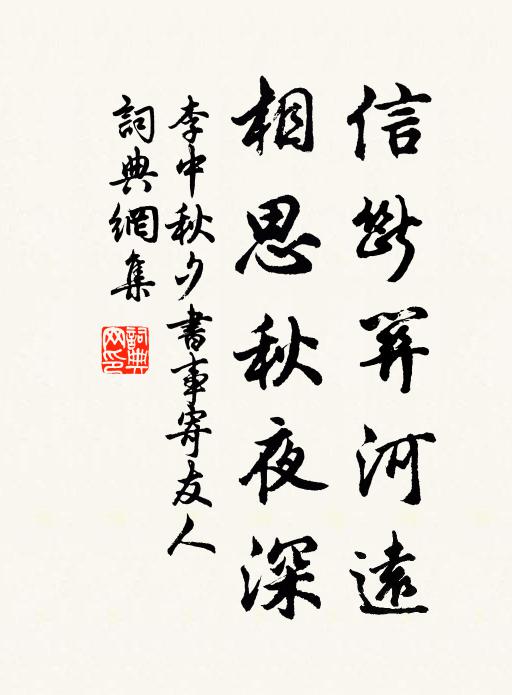 信斷關河遠
相思秋夜深
李中秋夕書事寄友人
詞典網集
詞典
网印